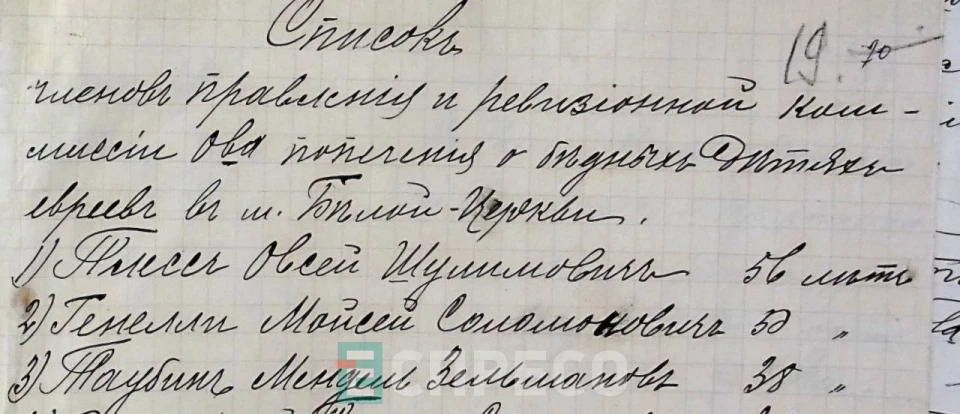 Списокъ
19. 70
членовъ правленія и ревизіонной ком-
миссіи Ова попеченія о бѣдныхъ Дѣтяхъ
евреевъ въ м. Бѣлой-Церкви.
1) Овсей Шулимовичъ 56 лѣтъ
2) Генелли Мойсей Соломоновичъ 50 "
3) Таубинъ Мендель Зельмановъ 38 "
ESPRESO